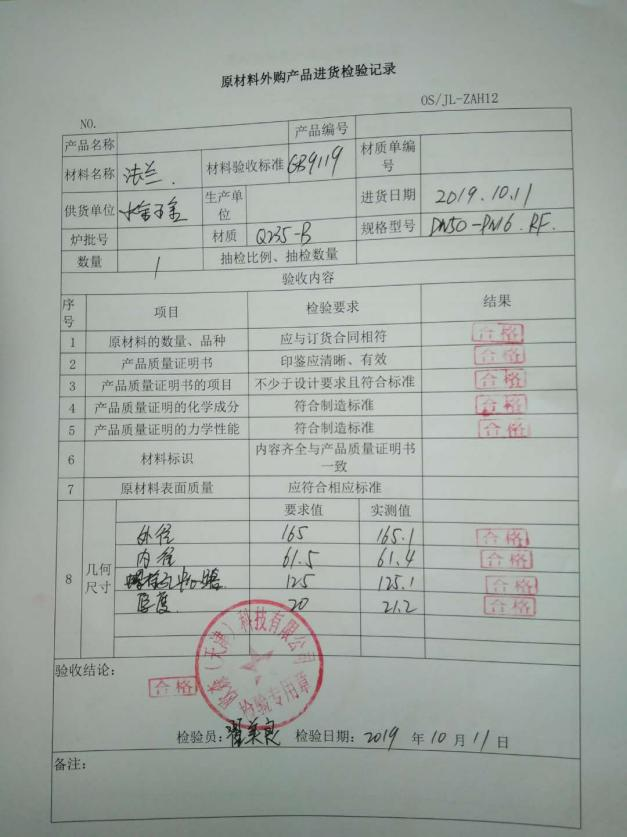 原材料外购产品进货检验记录
OS/JL-ZAH12
NO.
产品名称 产品编号
材料名称 法兰. 材料验收标准 GB9119 材质单编号
供货单位 生产单位 进货日期 2019.10.11
炉批号 材质 Q235-B 规格型号 DN50-PN16.RF.
数量 1 抽检比例、抽检数量
验收内容
序号 项目 检验要求 结果
1 原材料的数量、品种 应与订货合同相符 合格
2 产品质量证明书 印鉴应清晰、有效 合格
3 产品质量证明书的项目 不少于设计要求且符合标准 合格
4 产品质量证明的化学成分 符合制造标准 合格
5 产品质量证明的力学性能 符合制造标准 合格
6 材料标识 内容齐全与产品质量证明书一致
7 原材料表面质量 应符合相应标准
8 几何尺寸 要求值 实测值
外径 165 165.1 合格
内径 61.5 61.4 合格
125 125.1 合格
厚度 20 21.2 合格
验收结论:
合格
(天津)科技有限公司
检验专用章
检验员: 检验日期: 2019 年 10 月 11 日
备注: